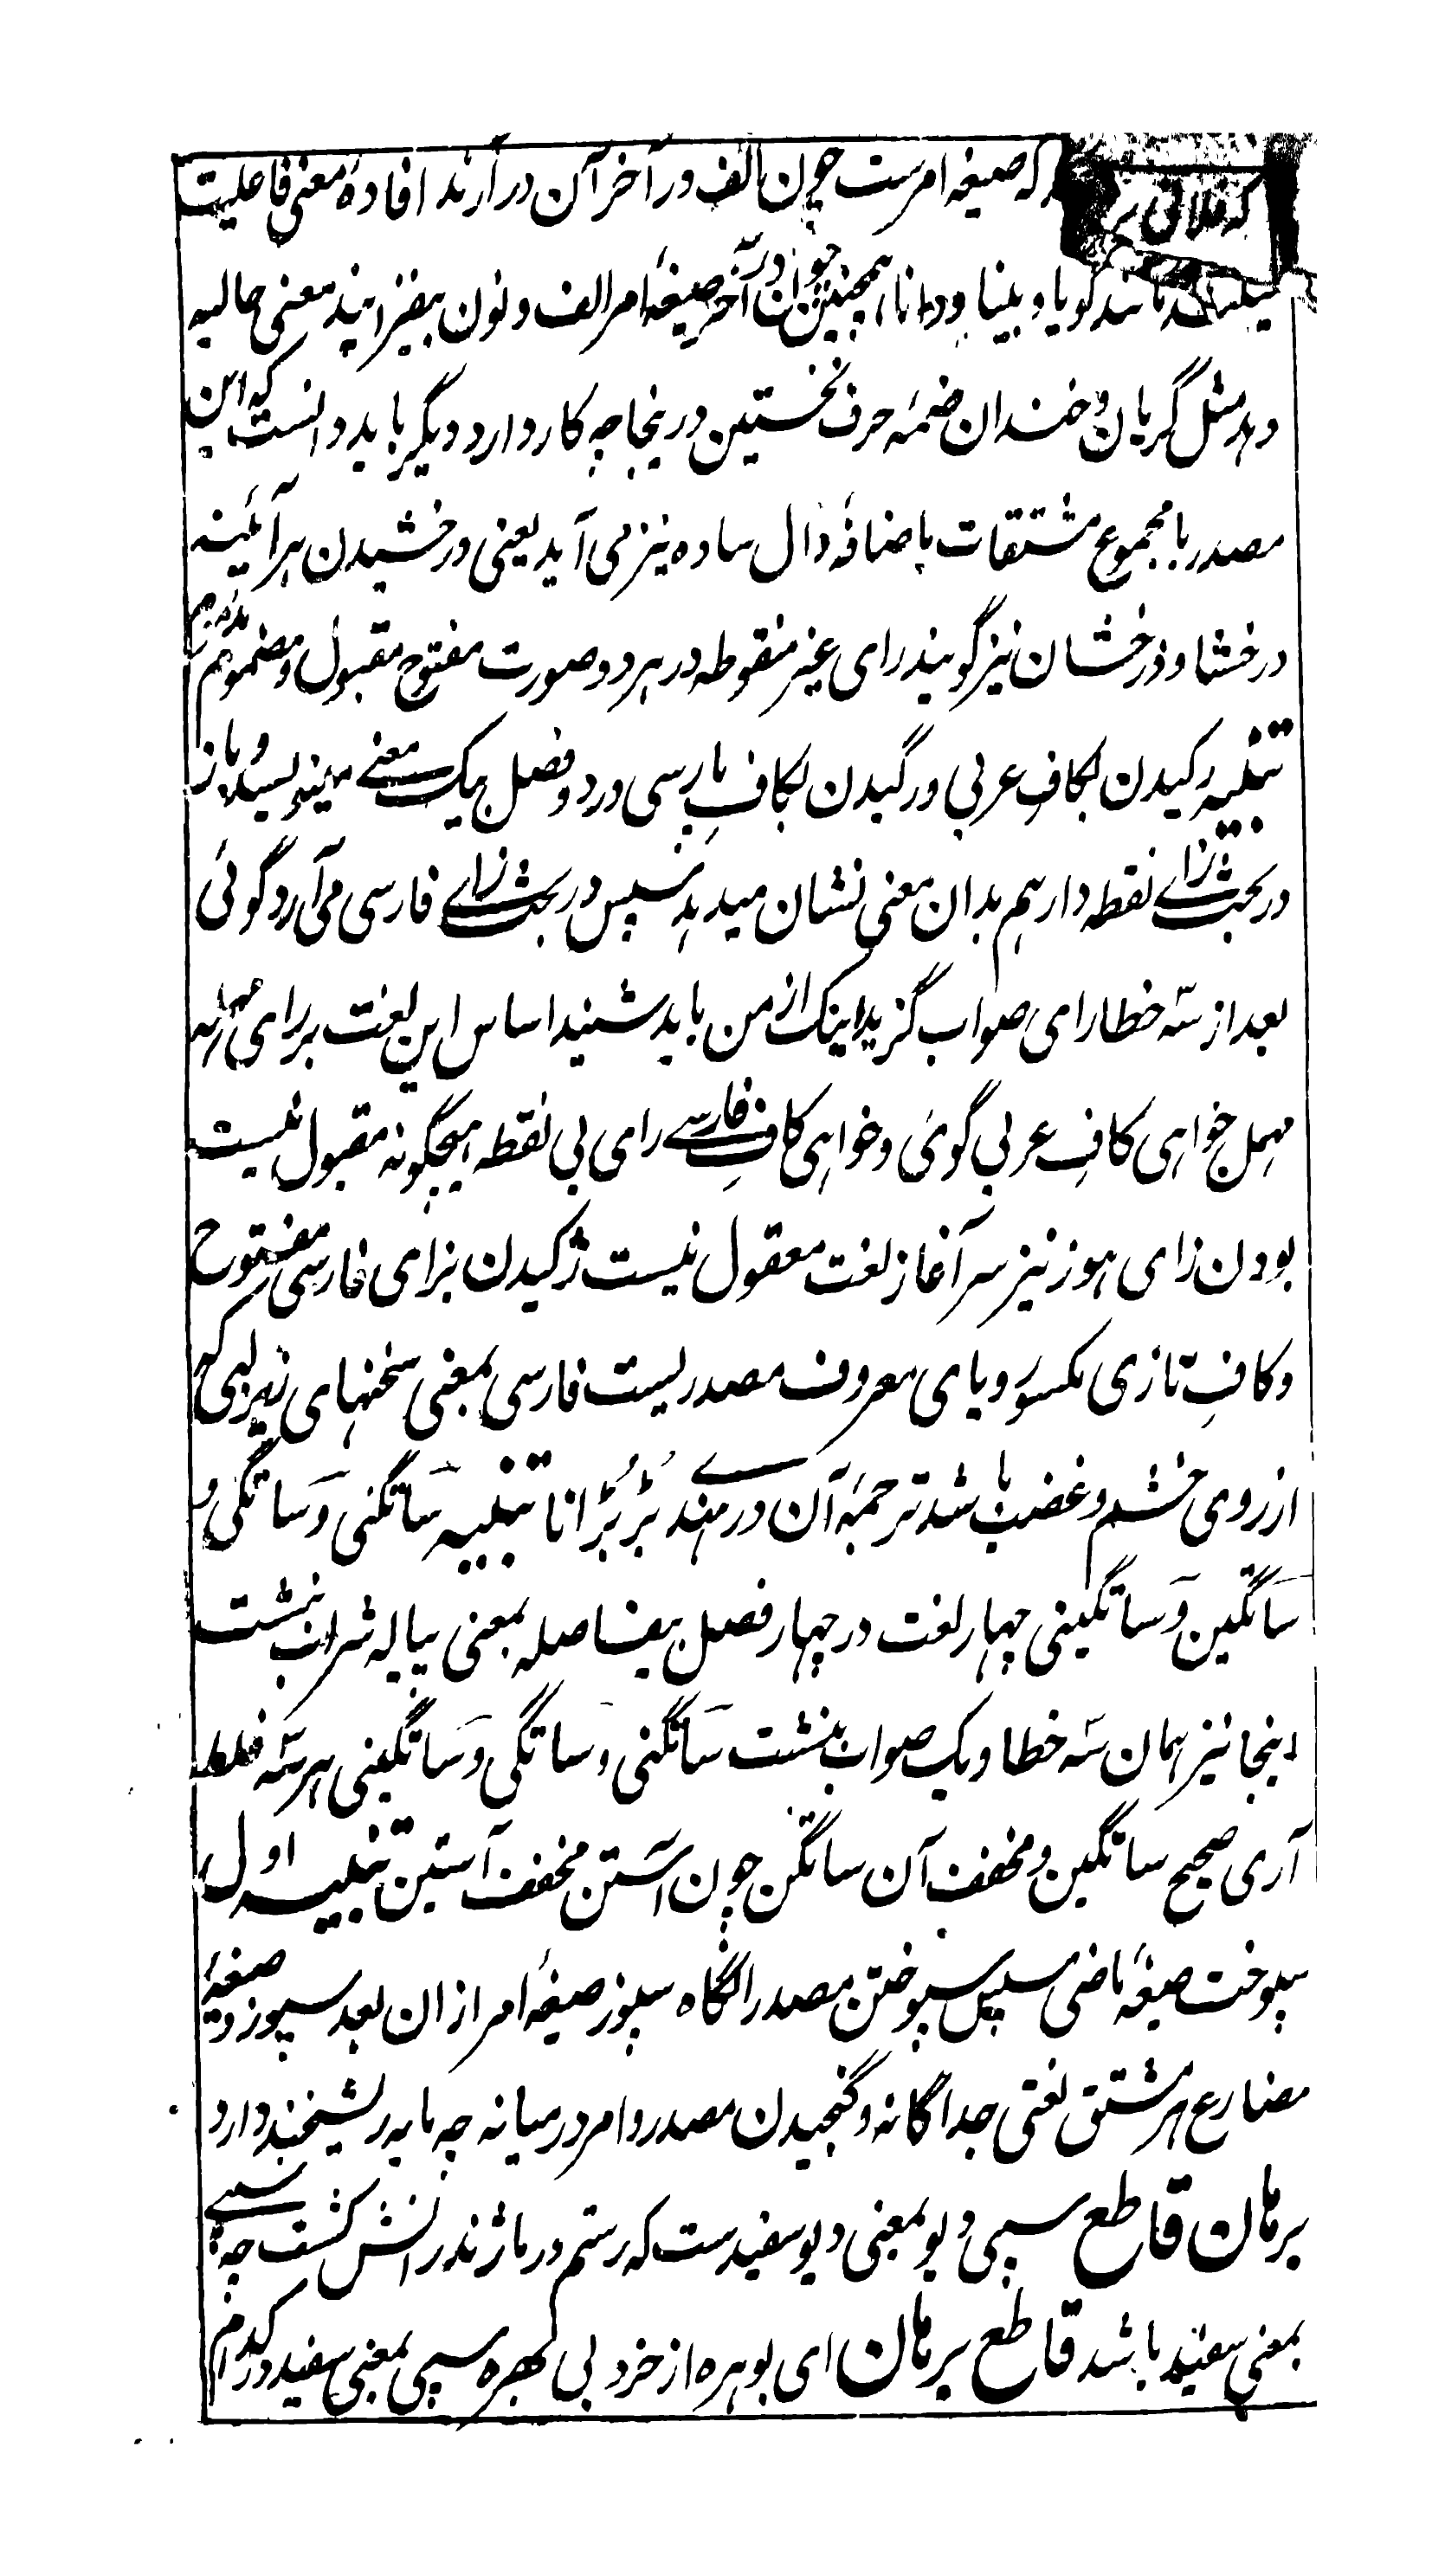 که صیغه امرست چون الف در آخر آن در آرند افادهٔ معنی فاعلیت
مانند گویا و بینا و دانا همچنین چون در آخر صیغهٔ امر الف و نون بیفزایند معنی حالیه
دهد مثل گریان و خندان ضمهٔ حرف نخستین درینجا چه کار دارد دیگر باید دانست که این
مصدر با مجموع مشتقات باضافهٔ دال ساده نیز می آید یعنی درخشیدن هر آئینه
درخشا و درخشان نیز گویند رای غیر منقوطه در هر دو صورت مفتوح مقبول و مضموم
تنبیه رکیدن بکافِ عربی و رگیدن بکافِ پارسی در دو فصل بیک معنے مینویسد و باز
در بحث زاے نقطه دار هم بدان معنی نشان میدهد سپس در بحث زاے فارسی می آرد گوئی
بعد از سه خطا رای صواب گزید اینک از من باید شنید اساس این لغت بر رای مهمله
مهمل خواهی کافِ عربی گوئی و خواهی کافِ فارسے رای بی نقطه هیچگونه مقبول نیست
بودن زای هوز نیز سر آغاز لغت معقول نیست ژکیدن بزای فارسی مفتوح
و کافِ تازی مکسور و یای معروف مصدریست فارسی بمعنی سخنهای زیر لبی که
از روی خشم و غضب باشد ترجمهٔ آن در هندے بُڑبُڑانا تنبیه ساتگنی و ساتگی و
ساتگین و ساتگینی چهار لغت در چهار فصل بیفاصله بمعنی پیاله شراب نبشت
اینجا نیز همان سه خطا و یک صواب بنشت ساتگنی و ساتگی و ساتگینی هر سه غلط
آری صحیح ساتگین و مخفف آن ساتگن چون آستن مخفف آستین تنبیه اول
سپوخت صیغهٔ ماضی سپس سپوختن مصدر آنگاه سپوز صیغهٔ امر از ان بعد سپوزد صیغهٔ
مضارع هر مشتق لغتی جداگانه و گنجیدن مصدر و امر در میانه چه مایه ریشخند دارد
برهان قاطع سپی دیو بمعنی دیو سفیدست که رستم در ماژندرانش کشت چه سپے
بمعنی سفید باشد قاطع برهان ای بوهره از خرد بی بهره سپی بمعنی سفید در کدام